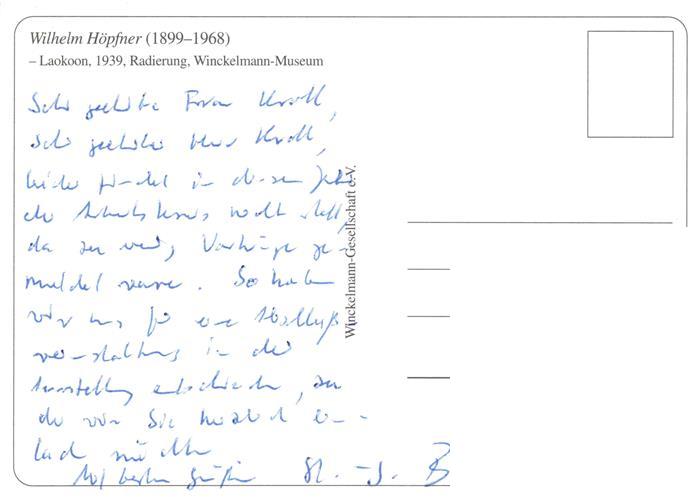 Wilhelm Höpfner (1899–1968)
– Laokoon, 1939, Radierung, Winckelmann-Museum
Sehr geehrte Frau Kroll,
sehr geehrter Herr Kroll,
leider findet in diesem Jahr
der Arbeitskreis nicht statt,
da zu wenig Vorträge ge-
meldet waren. So haben
wir uns für eine
in der
Ausstellung entschieden, zu
der wir Sie herzlich ein-
laden möchten
Mit besten Grüßen
Winckelmann-Gesellschaft e.V.